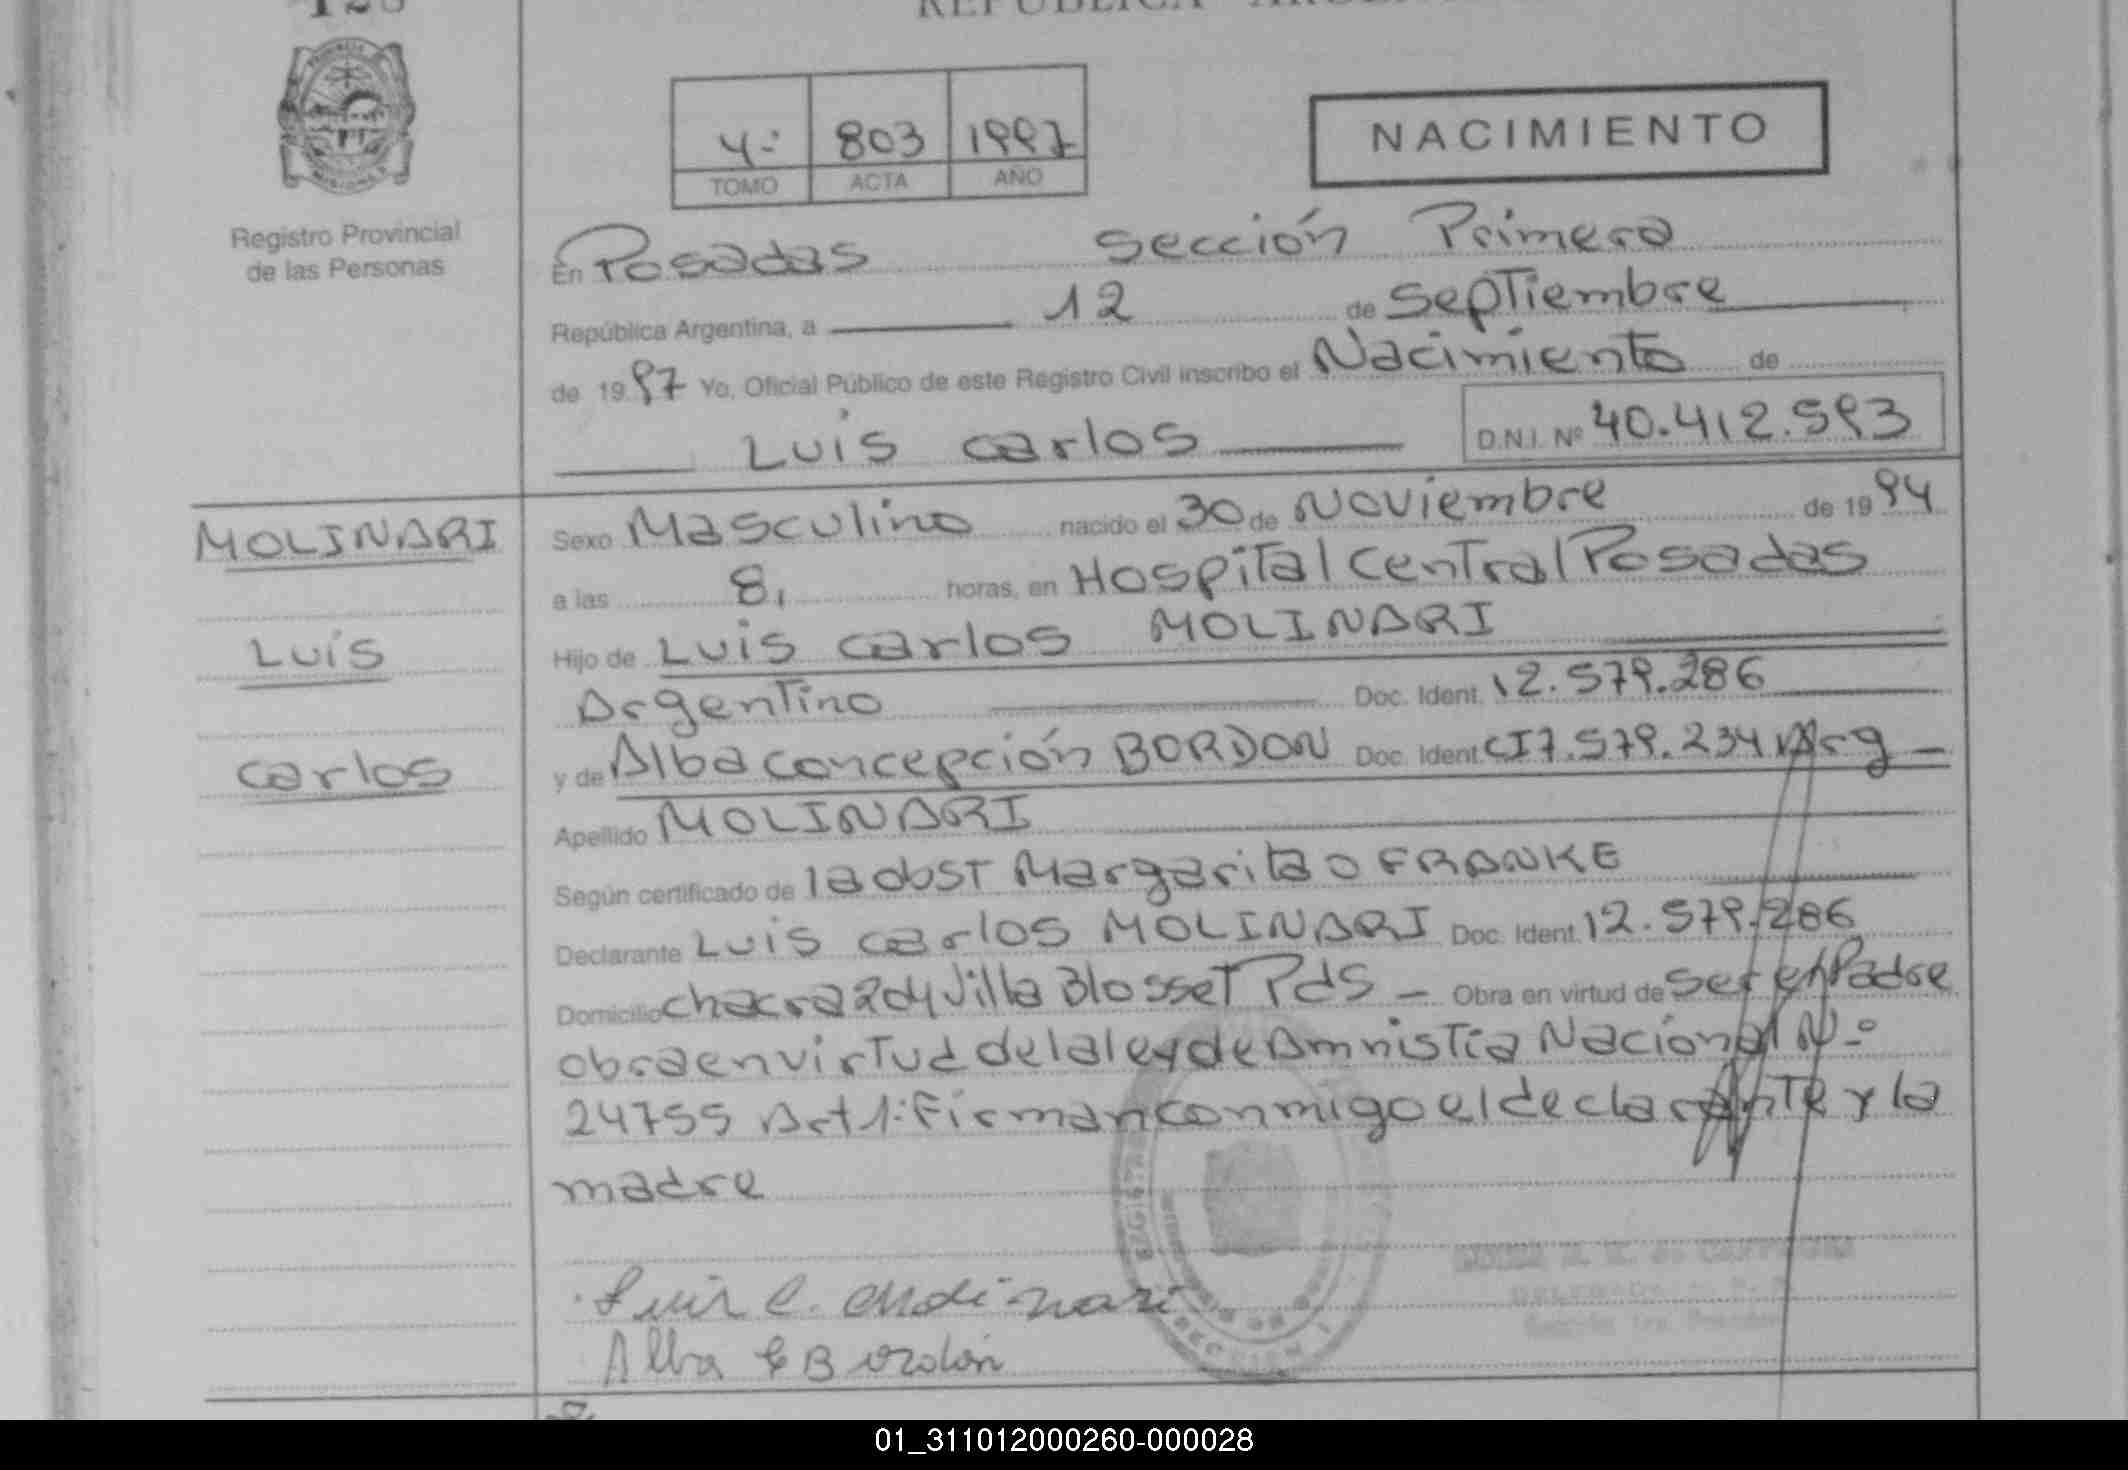 REPUBLICA
4º 803 1997
TOMO ACTA AÑO
NACIMIENTO
Registro Provincial
de las Personas
En Posadas Sección Primera
República Argentina, a 12 de Septiembre
de 1997 Yo, Oficial Público de este Registro Civil inscribo el Nacimiento de
Luis Carlos D.N.I. Nº 40.412.593
MOLINARI
Luis
Carlos
Sexo Masculino nacido el 30 de Noviembre de 1994
a las 8, horas, en Hospital Central Posadas
Hijo de Luis Carlos MOLINARI
Argentino Doc. Ident. 12.579.286
y de Alba Concepción BORDON Doc. Ident. CI 7.579.234 Arg
Apellido MOLINARI
Según certificado de la obst Margarita O FRANKE
Declarante Luis Carlos MOLINARI Doc. Ident. 12.579.286
Domicilio Chacra 204 Villa Blosset Pds - Obra en virtud de ser el Padre
obra en virtud de la ley de Amnistia Nacional Nº
24755 Art 1: Firman conmigo el declarante y la
madre
Luis C. Molinari
Alba C Bordón
01_311012000260-000028